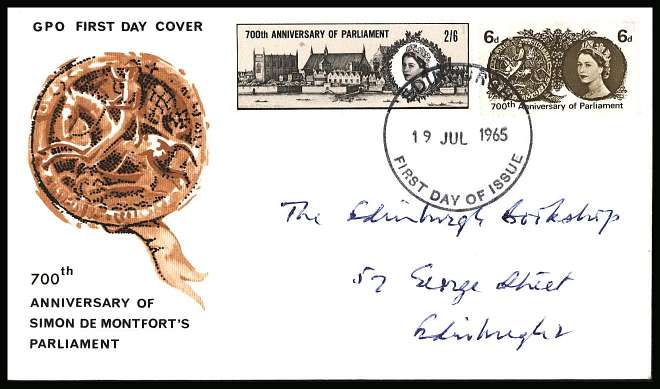 GPO FIRST DAY COVER
700th ANNIVERSARY OF PARLIAMENT 2/6
6d 6d
700th Anniversary of Parliament
EDINBURGH
19 JUL 1965
FIRST DAY OF ISSUE
The Edinburgh Bookshop
57 George Street
Edinburgh 2
700th
ANNIVERSARY OF
SIMON DE MONTFORT'S
PARLIAMENT